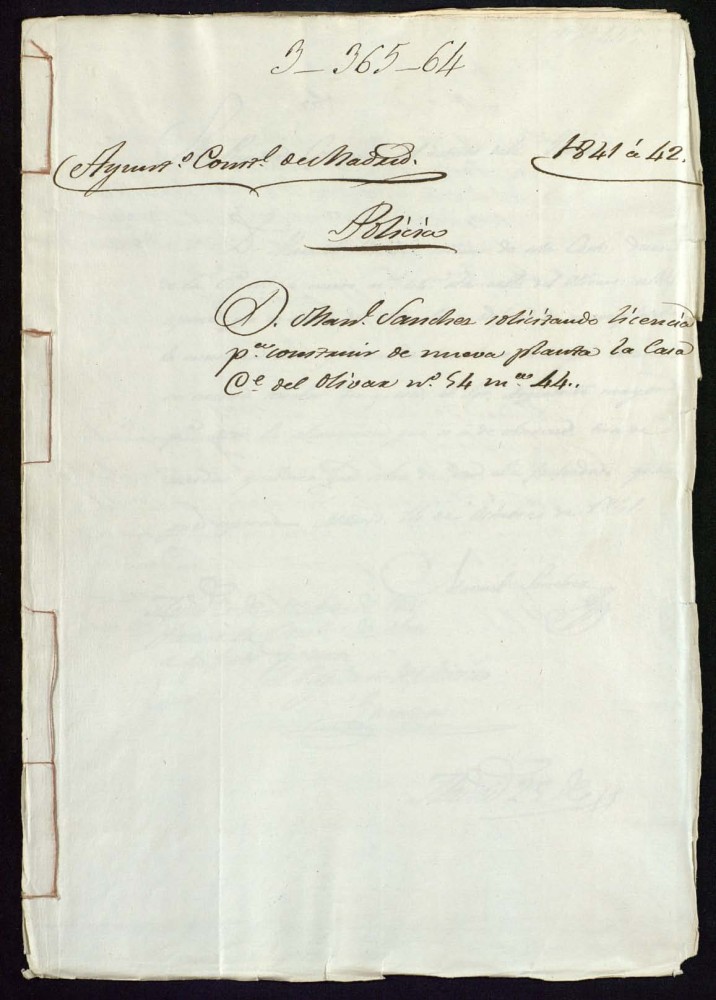 3-365-64
Ayunt.º Const.l de Madrid. 1841 á 42.
Policia
D. Man.l Sanchez solicitando licencia
p.a construir de nueva planta la Casa
C.e del Olivar n.º 54 m.na 44..